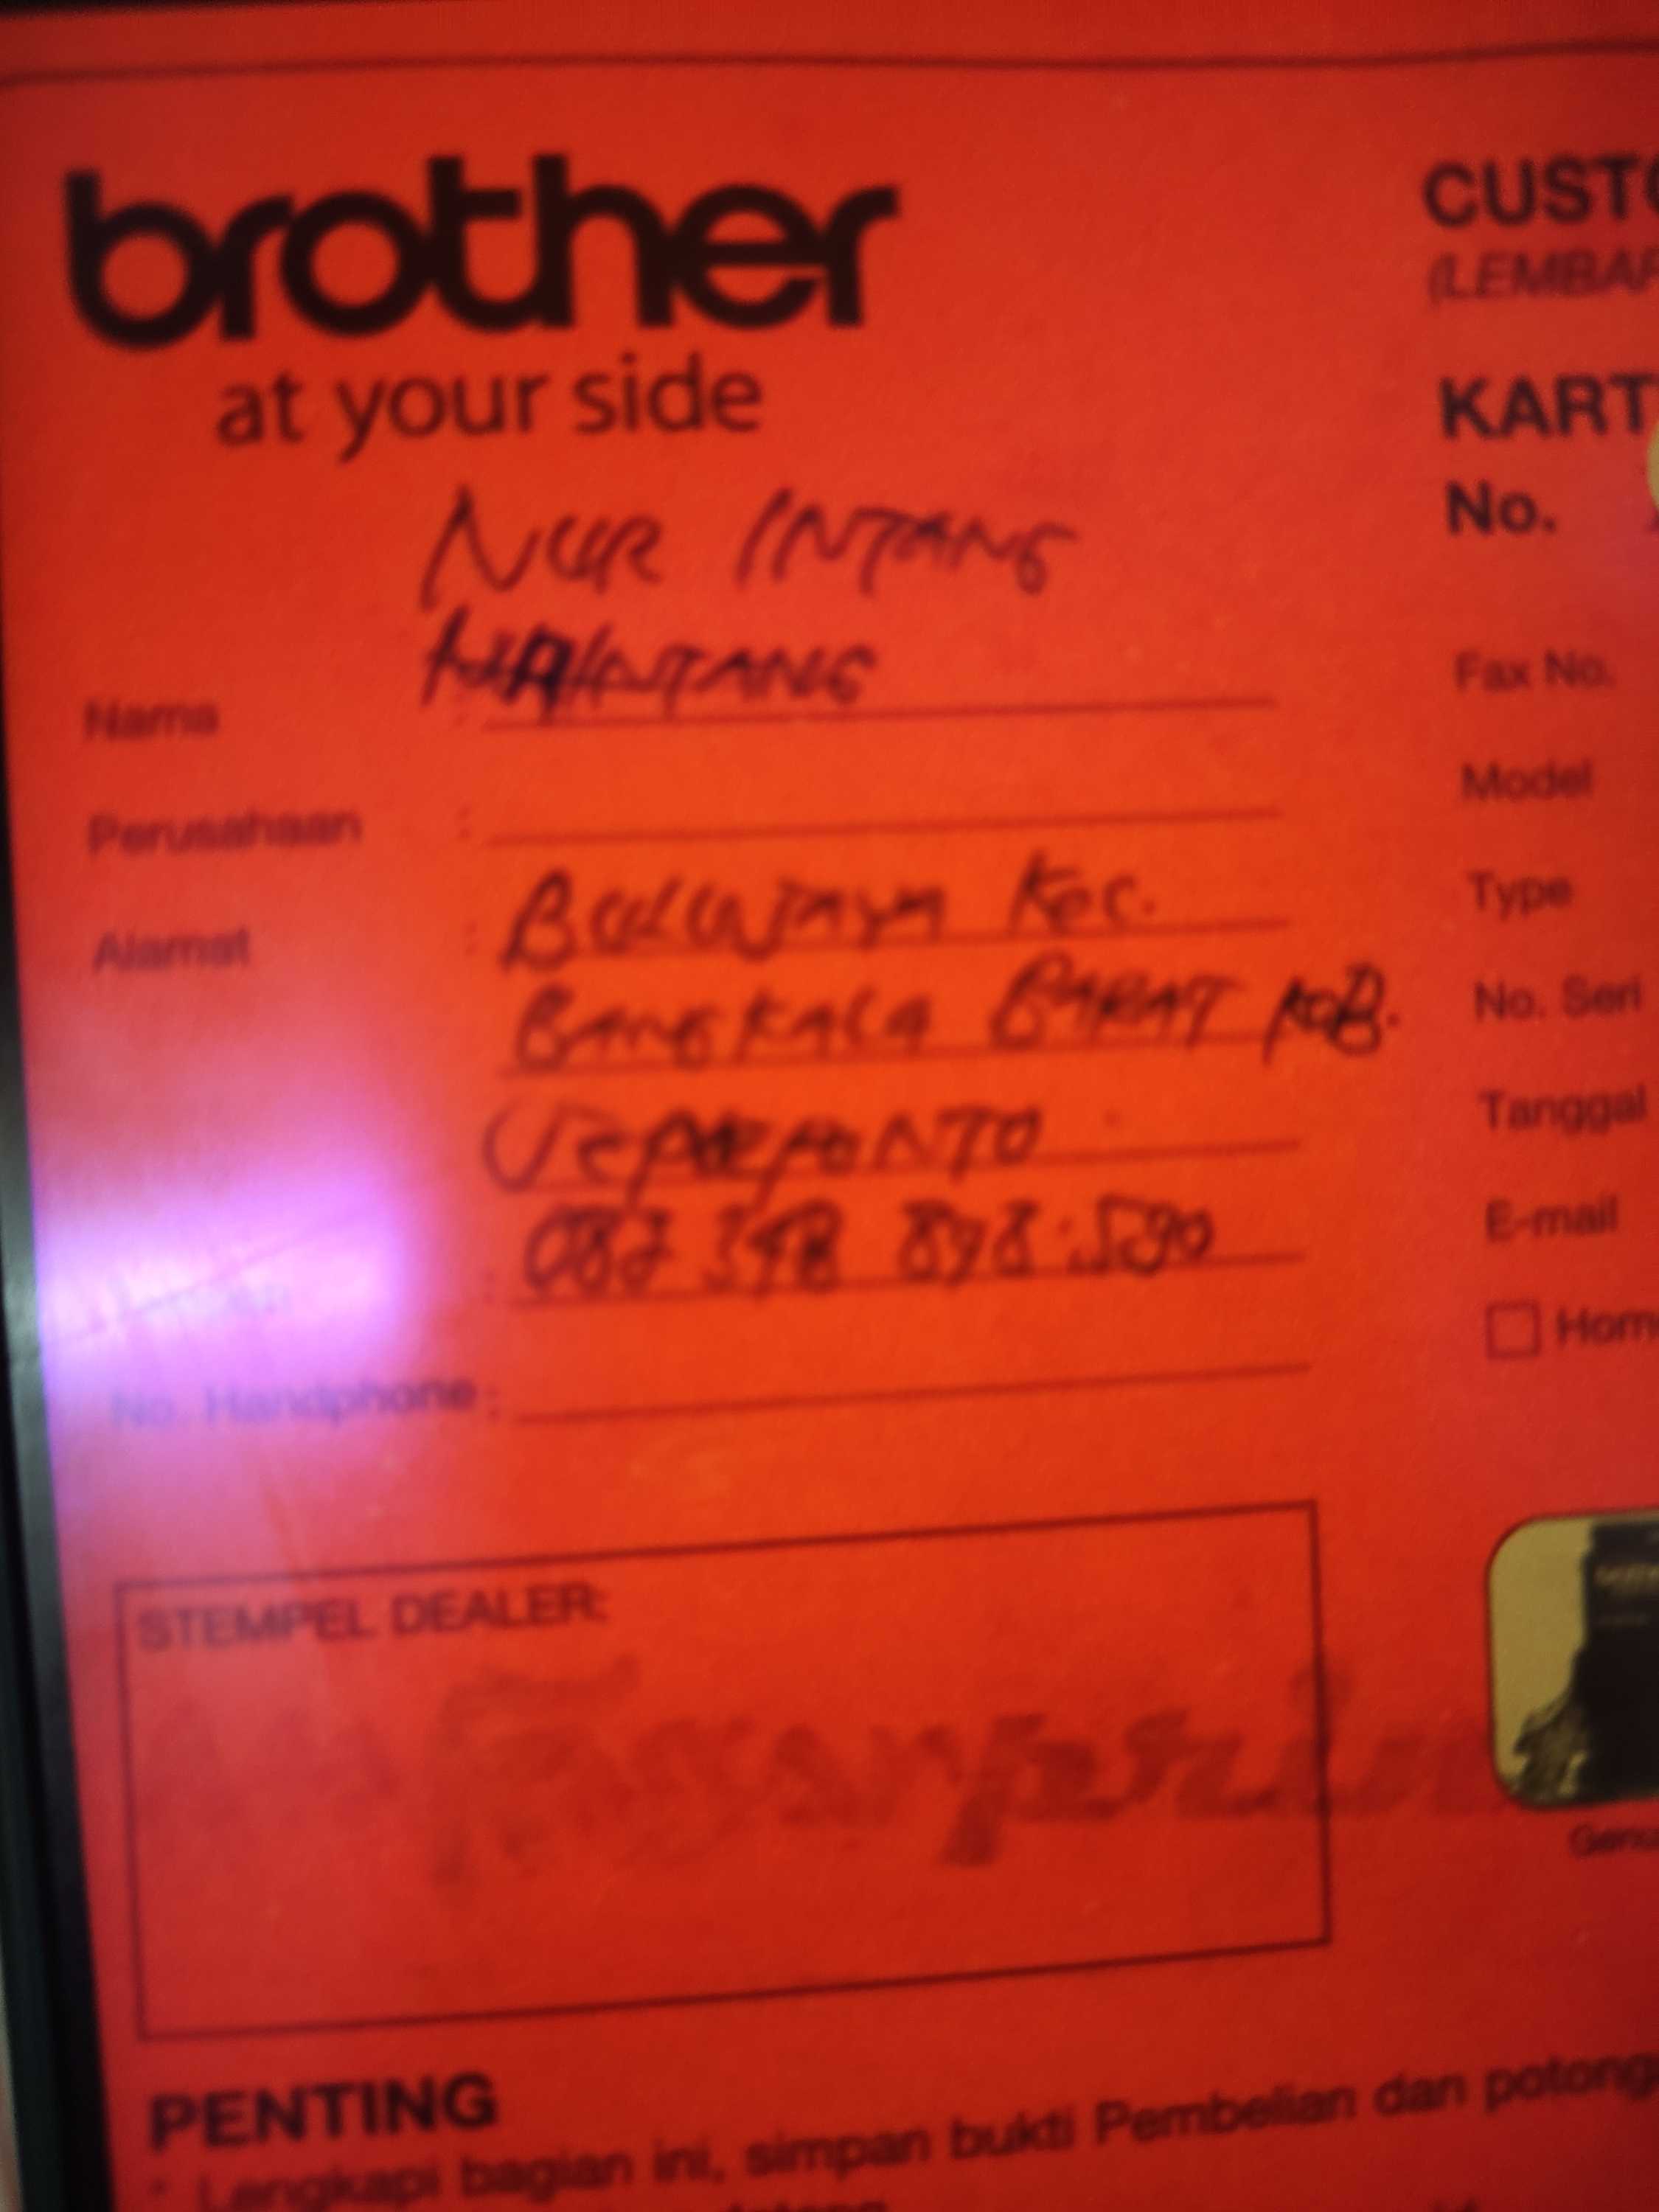 brother
at your side
CUSTO
(LEMBAR
KART
No.
NUR INTANG
Nama :
Perusahaan :
Alamat : BULUJAYA KEC.
BANGKALA BARAT KAB.
JENEPONTO
: 087 348 898 590
No. Handphone :
Fax No.
Model
Type
No. Seri
Tanggal
E-mail
Hom
STEMPEL DEALER:
Genu
PENTING
* Lengkapi bagian ini, simpan bukti Pembelian dan potong